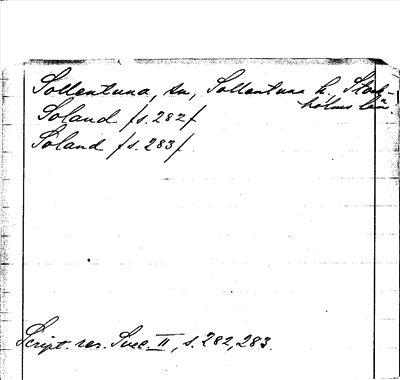 Sollentuna, sn, Sollentuna h., Stock-
holms län.
Soland /s. 282/
Soland /s. 283/
Script. rer. Svec. II, s. 282, 283.